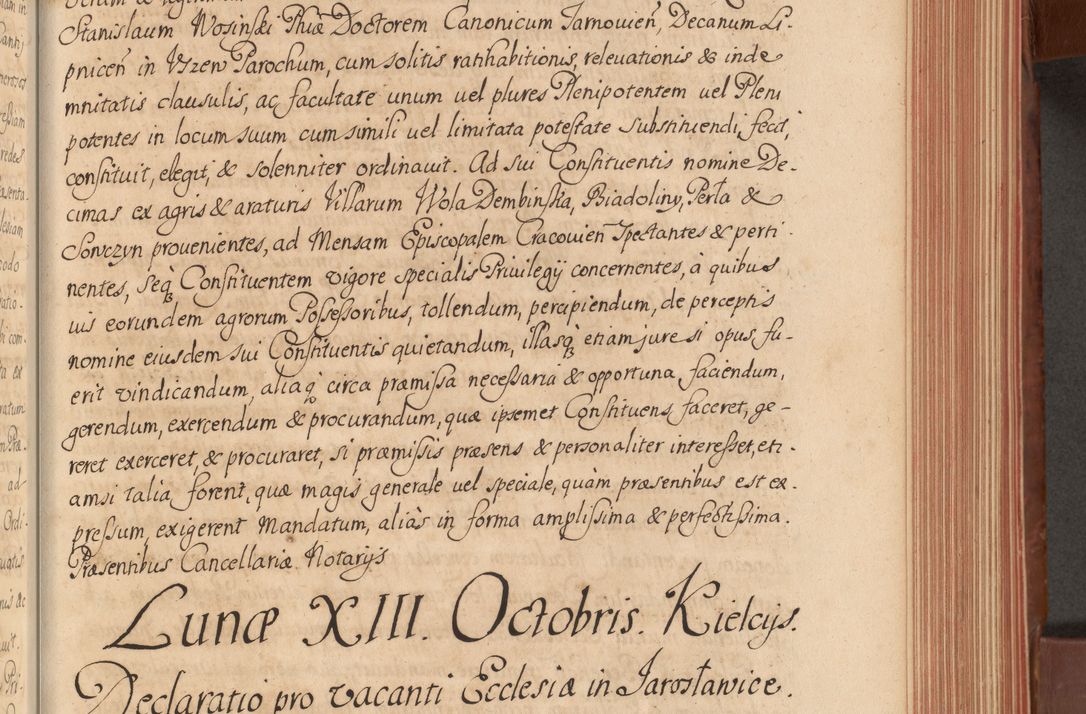 Stanislaum Wosinski Phiæ Doctorem Canonicum Tarnovień, Decanum Li-
pniceń in Uzzew Parochum, cum solitis ratihabitionis, releuationis & inde
mnitatis clausulis, ac facultate unum uel plures Plenipotentem uel Pleni
potentes in locum suum cum simili uel limitata potestate substituendi, fecit,
constituit, elegit, & solenniter ordinauit. Ad sui Constituentis nomine De-
cimas ex agris & araturis Villarum Wola Dembinska, Biadoliny, Perła &
Sonczyn prouenientes, ad Mensam Episcopalem Cracouień spectantes & perti-
nentes, seq Constituentem vigore specialis Priuilegij concernentes, à quibus
uis eorundem agrorum Possessoribus, tollendum, percipiendum, de perceptis
nomine eiusdem sui Constituentis quietandum, illasq etiam jure si opus fu-
erit vindicandum, aliaq circa præmissa necessaria & opportuna faciendum,
gerendum, exercendum & procurandum, quæ ipsemet Constituens faceret, ge-
reret exerceret, & procuraret, si præmissis præsens & personaliter interesset, eti-
amsi talia forent, quæ magis generale uel speciale, quàm præsentibus est ex-
pressum, exigerent Mandatum, aliàs in forma amplissima & perfectissima.
Præsentibus Cancellariæ Notarijs
Lunæ XIII. Octobris. Kielcijs.
Declaratio pro vacanti Ecclesia in Jarosławice.